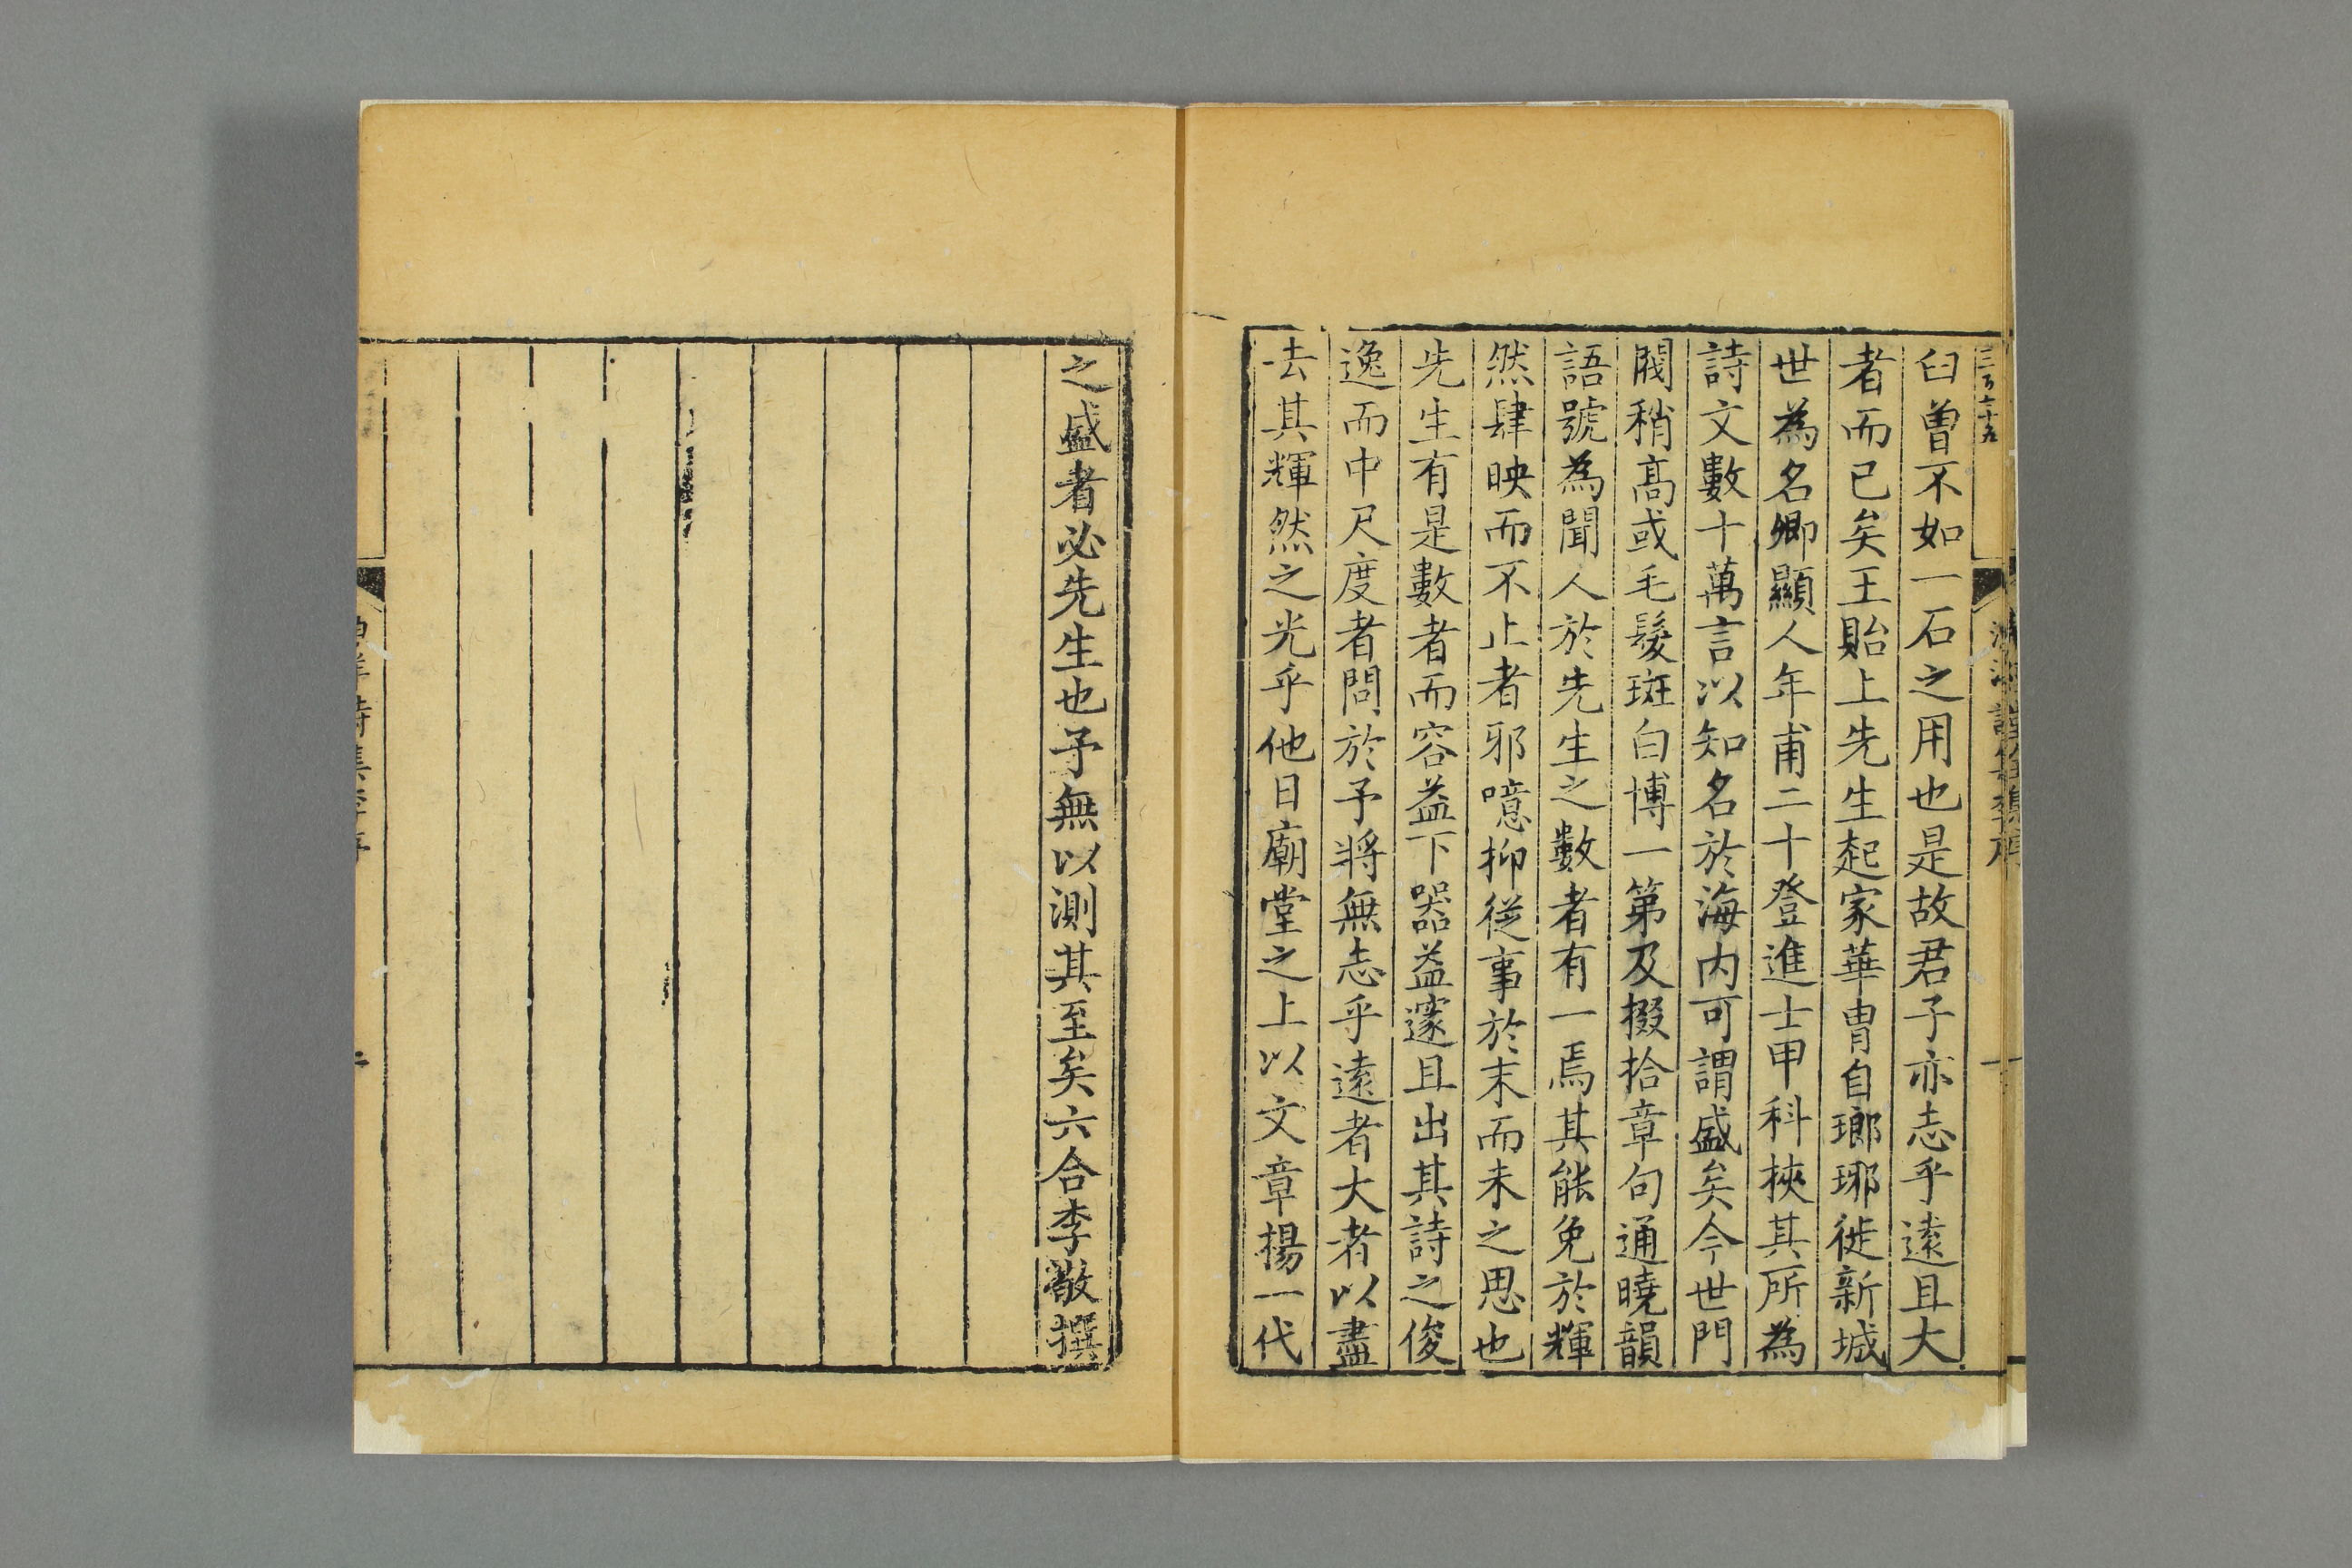 臼曾不如一石之用也是故君子亦志乎遠且大
者而已矣王貽上先生起家華冑自瑯琊徙新城
世為名卿顯人年甫二十登進士甲科挾其所為
詩文數十萬言以知名於海内可謂盛矣今世門
閥稍髙或毛髮斑白博一第及掇拾章句通曉韻
語號為聞人於先生之數者有一焉其能免於輝
然肆映而不止者邪噫抑従事於末而未之思也
先生有是數者而容益下器益邃且出其詩之俊
逸而中尺度者問於予將無志乎遠者大者以盡
去其輝然之光乎他日廟堂之上以文章揚一代
之盛者必先生也予無以測其至矣六合李敬撰